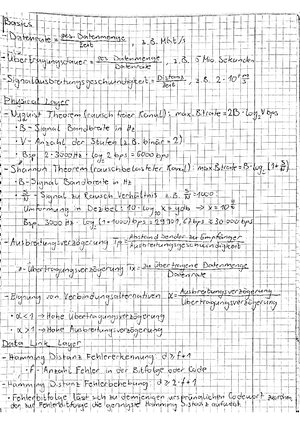 Basics
- Datenrate = ges. Datenmenge / Zeit , z.B. Mbit/s
- Übertragungsdauer = ges. Datenmenge / Datenrate , z.B. 5 Mio Sekunden
- Signalausbreitungsgeschwindigkeit = Distanz / Zeit , z.B. 2 · 10⁸ m/s
Physical Layer
- Nyquist Theorem (rausch freier Kanal): max. Bitrate = 2B · log₂ V bps
• B - Signal Bandbreite in Hz
• V - Anzahl der Stufen (z.B. binär = 2)
• Bsp. 2 · 3000 Hz · log 2 bps = 6000 bps
- Shannon Theorem (rauschbelasteter Kanal): max Bitrate = B · log₂ (1 + S/N)
• B - Signal Bandbreite in Hz
• S/N - Signal zu Rausch Verhältnis z.B. S/N = 1000
Umformung in Dezibel: 10 · log₁₀ x = y db → x = 10^(y/10)
• Bsp. 3000 Hz · log (1 + 1000) bps = 29901,67 bps ≈ 30 000 bps
- Ausbreitungsverzögerung Tp = Abstand Sender zu Empfänger / Ausbreitungsgeschwindigkeit
- Übertragungsverzögerung Tx = zu übertragene Datenmenge / Datenrate
- Eignung von Verbindungsalternativen α = Ausbreitungsverzögerung / Übertragungsverzögerung
• α < 1 → Hohe Übertragungsverzögerung
• α > 1 → Hohe Ausbreitungsverzögerung
Data Link Layer
- Hamming Distanz Fehlererkennung d ≥ f + 1
• f - Anzahl Fehler in der Bitfolge oder Code
- Hamming Distanz Fehlerbehebung d ≥ 2 · f + 1
• Fehlerbitfolge lässt sich zu demjenigen ursprünglichen Codewort zuordnen,
der zur Fehlerbitfolge die geringste Hamming Distanz aufweist